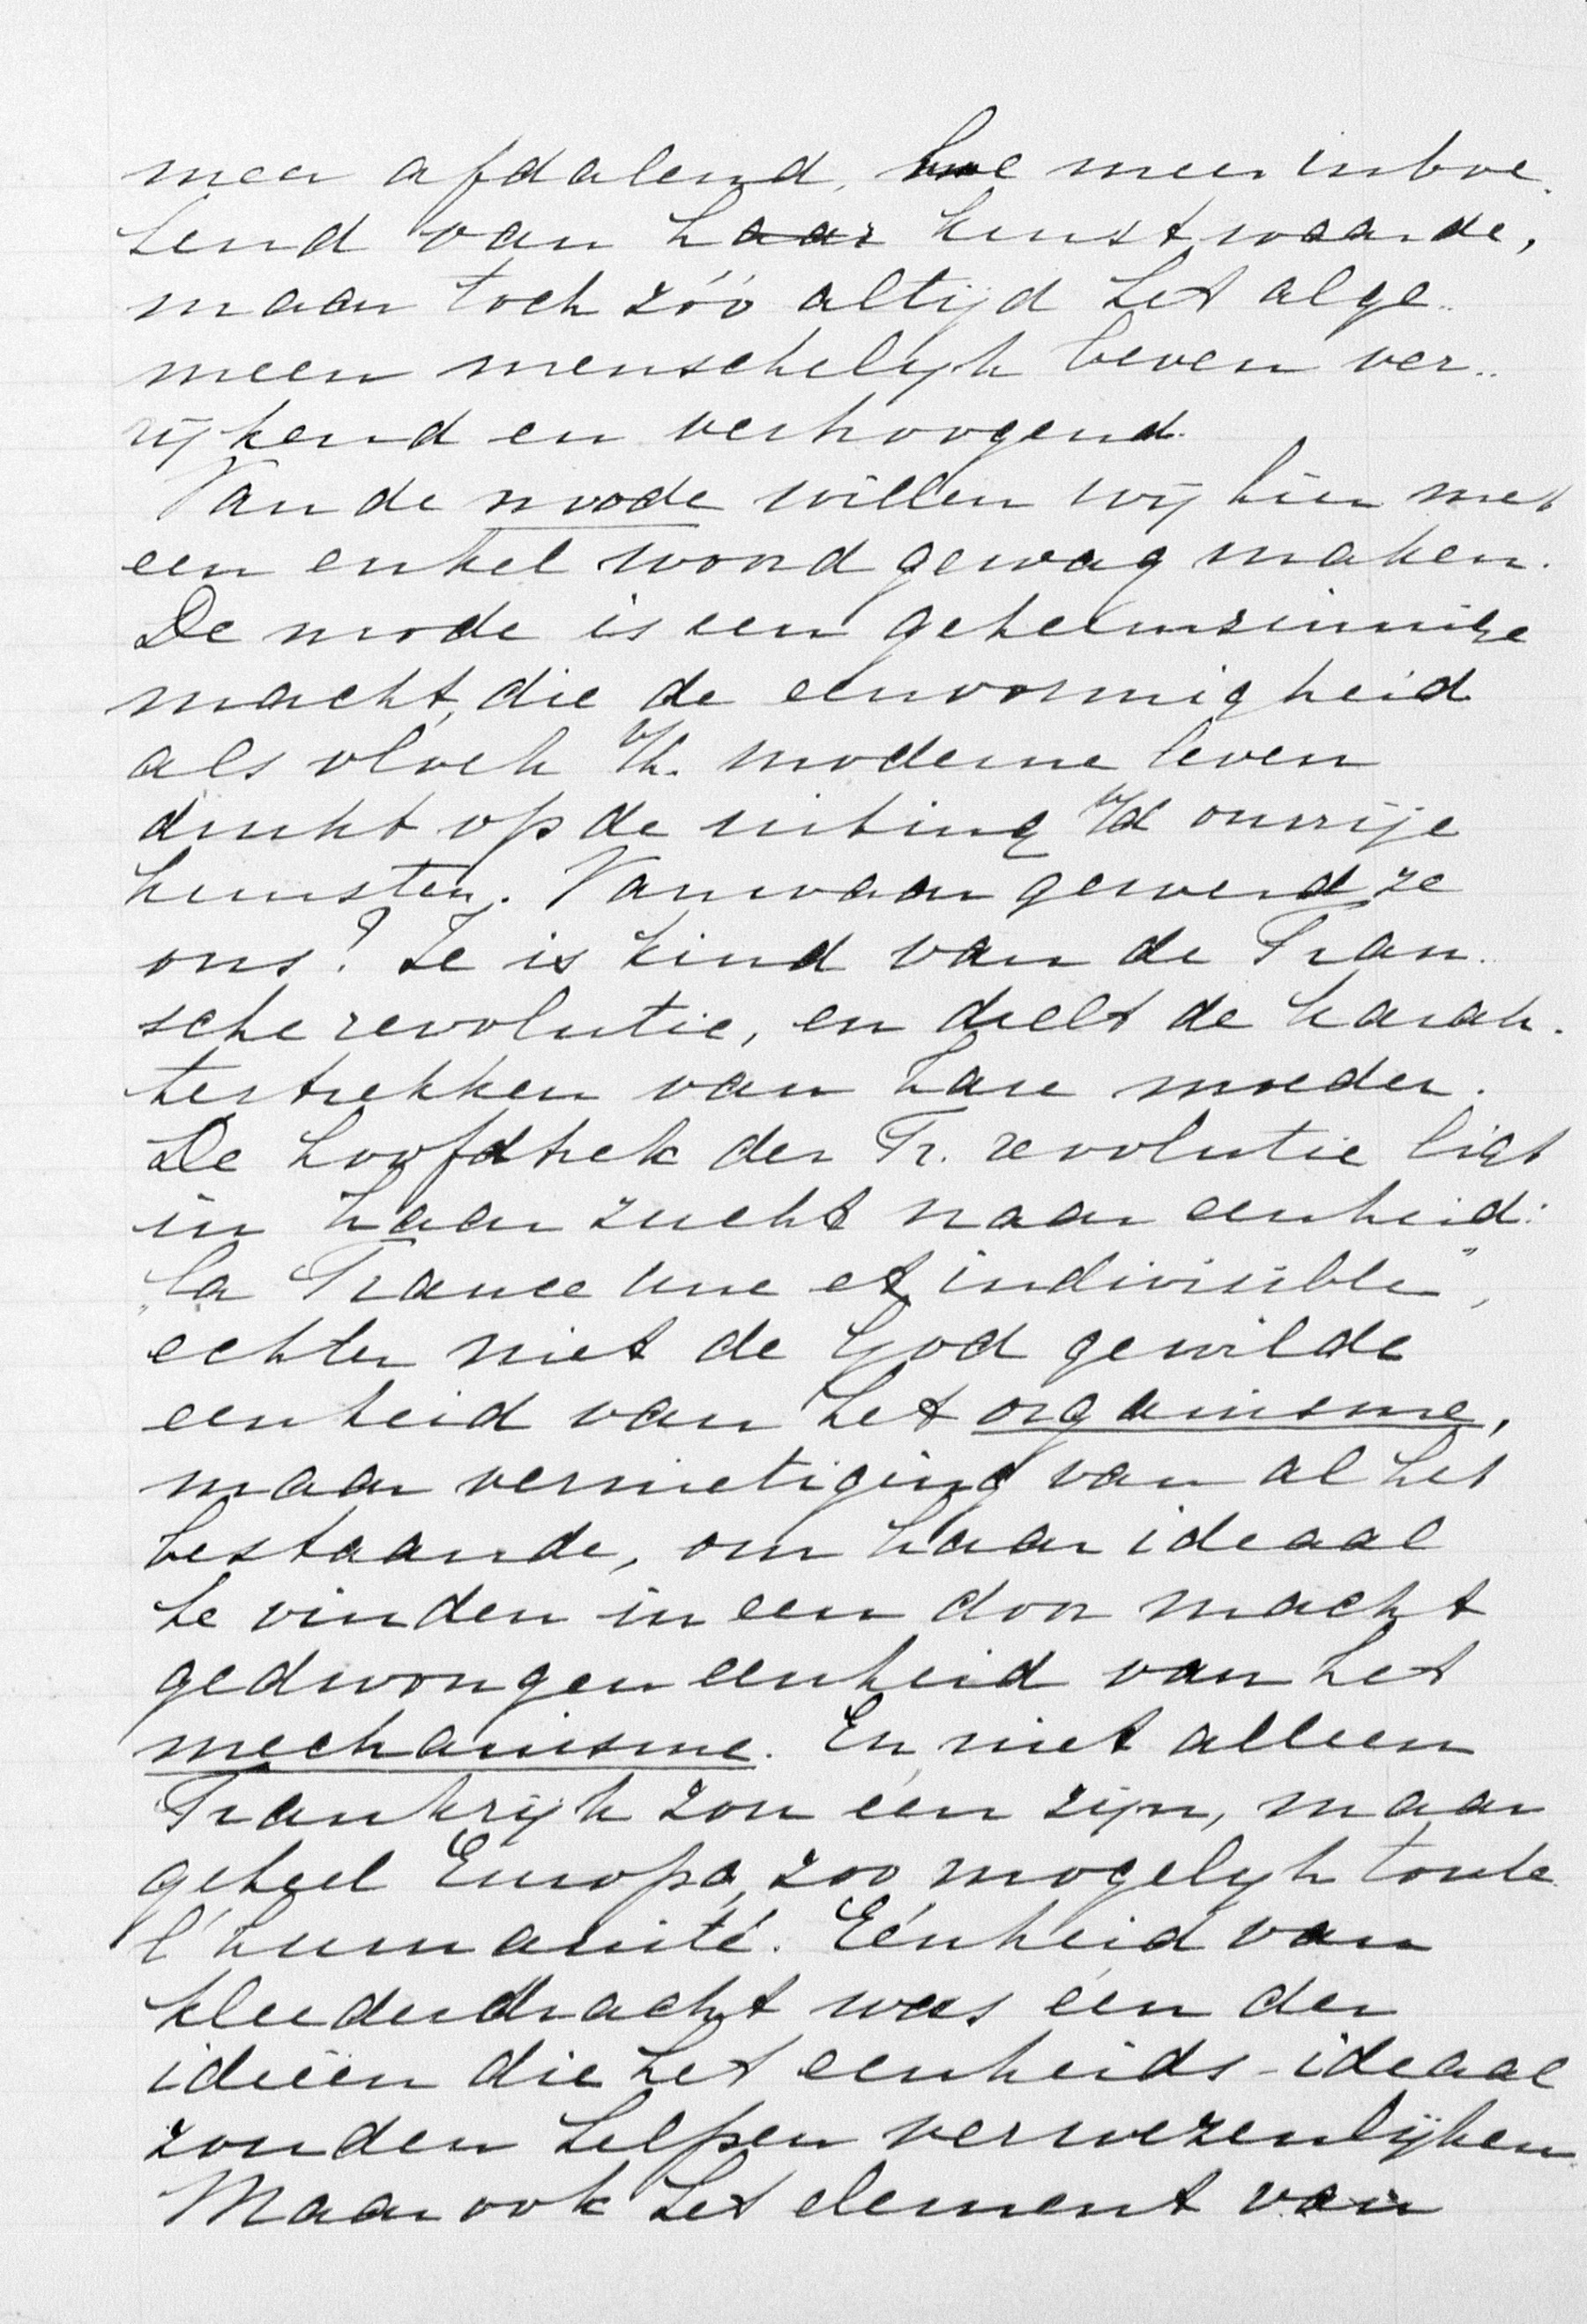 meer afdalend, hoe meer inboe-
tend van haar kunstwaarde,
maar toch zóó altijd het alge-
meen menschelijk leven ver-
rijkend en verhoogend.
Van de mode willen wij hier met
een enkel woord gewag maken.
De mode is een geheimzinnige
macht, die de eenvormigheid
als vloek v/h. moderne leven
drukt op de uiting v/d onvrije
kunsten. Vanwaar gewerd ze
ons? Ze is kind van de Fran-
sche revolutie, en deelt de karak-
tertrekken van hare moeder.
De hoofdtrek der Fr. revolutie ligt
in haar zucht naar eenheid:
"la France une et indivisible",
echter niet de God gewilde
eenheid van het organisme,
maar vernietiging van al het
bestaande, om haar ideaal
te vinden in een door macht
gedwongen eenheid van het
mechanisme. En niet alleen
Frankrijk zou één zijn, maar
geheel Europa, zoo mogelijk toute
l'humanité. Eénheid van
kleederdracht was één der
ideëen die het eenheids-ideaal
zouden helpen verwezenlijken
Maar ook het element van